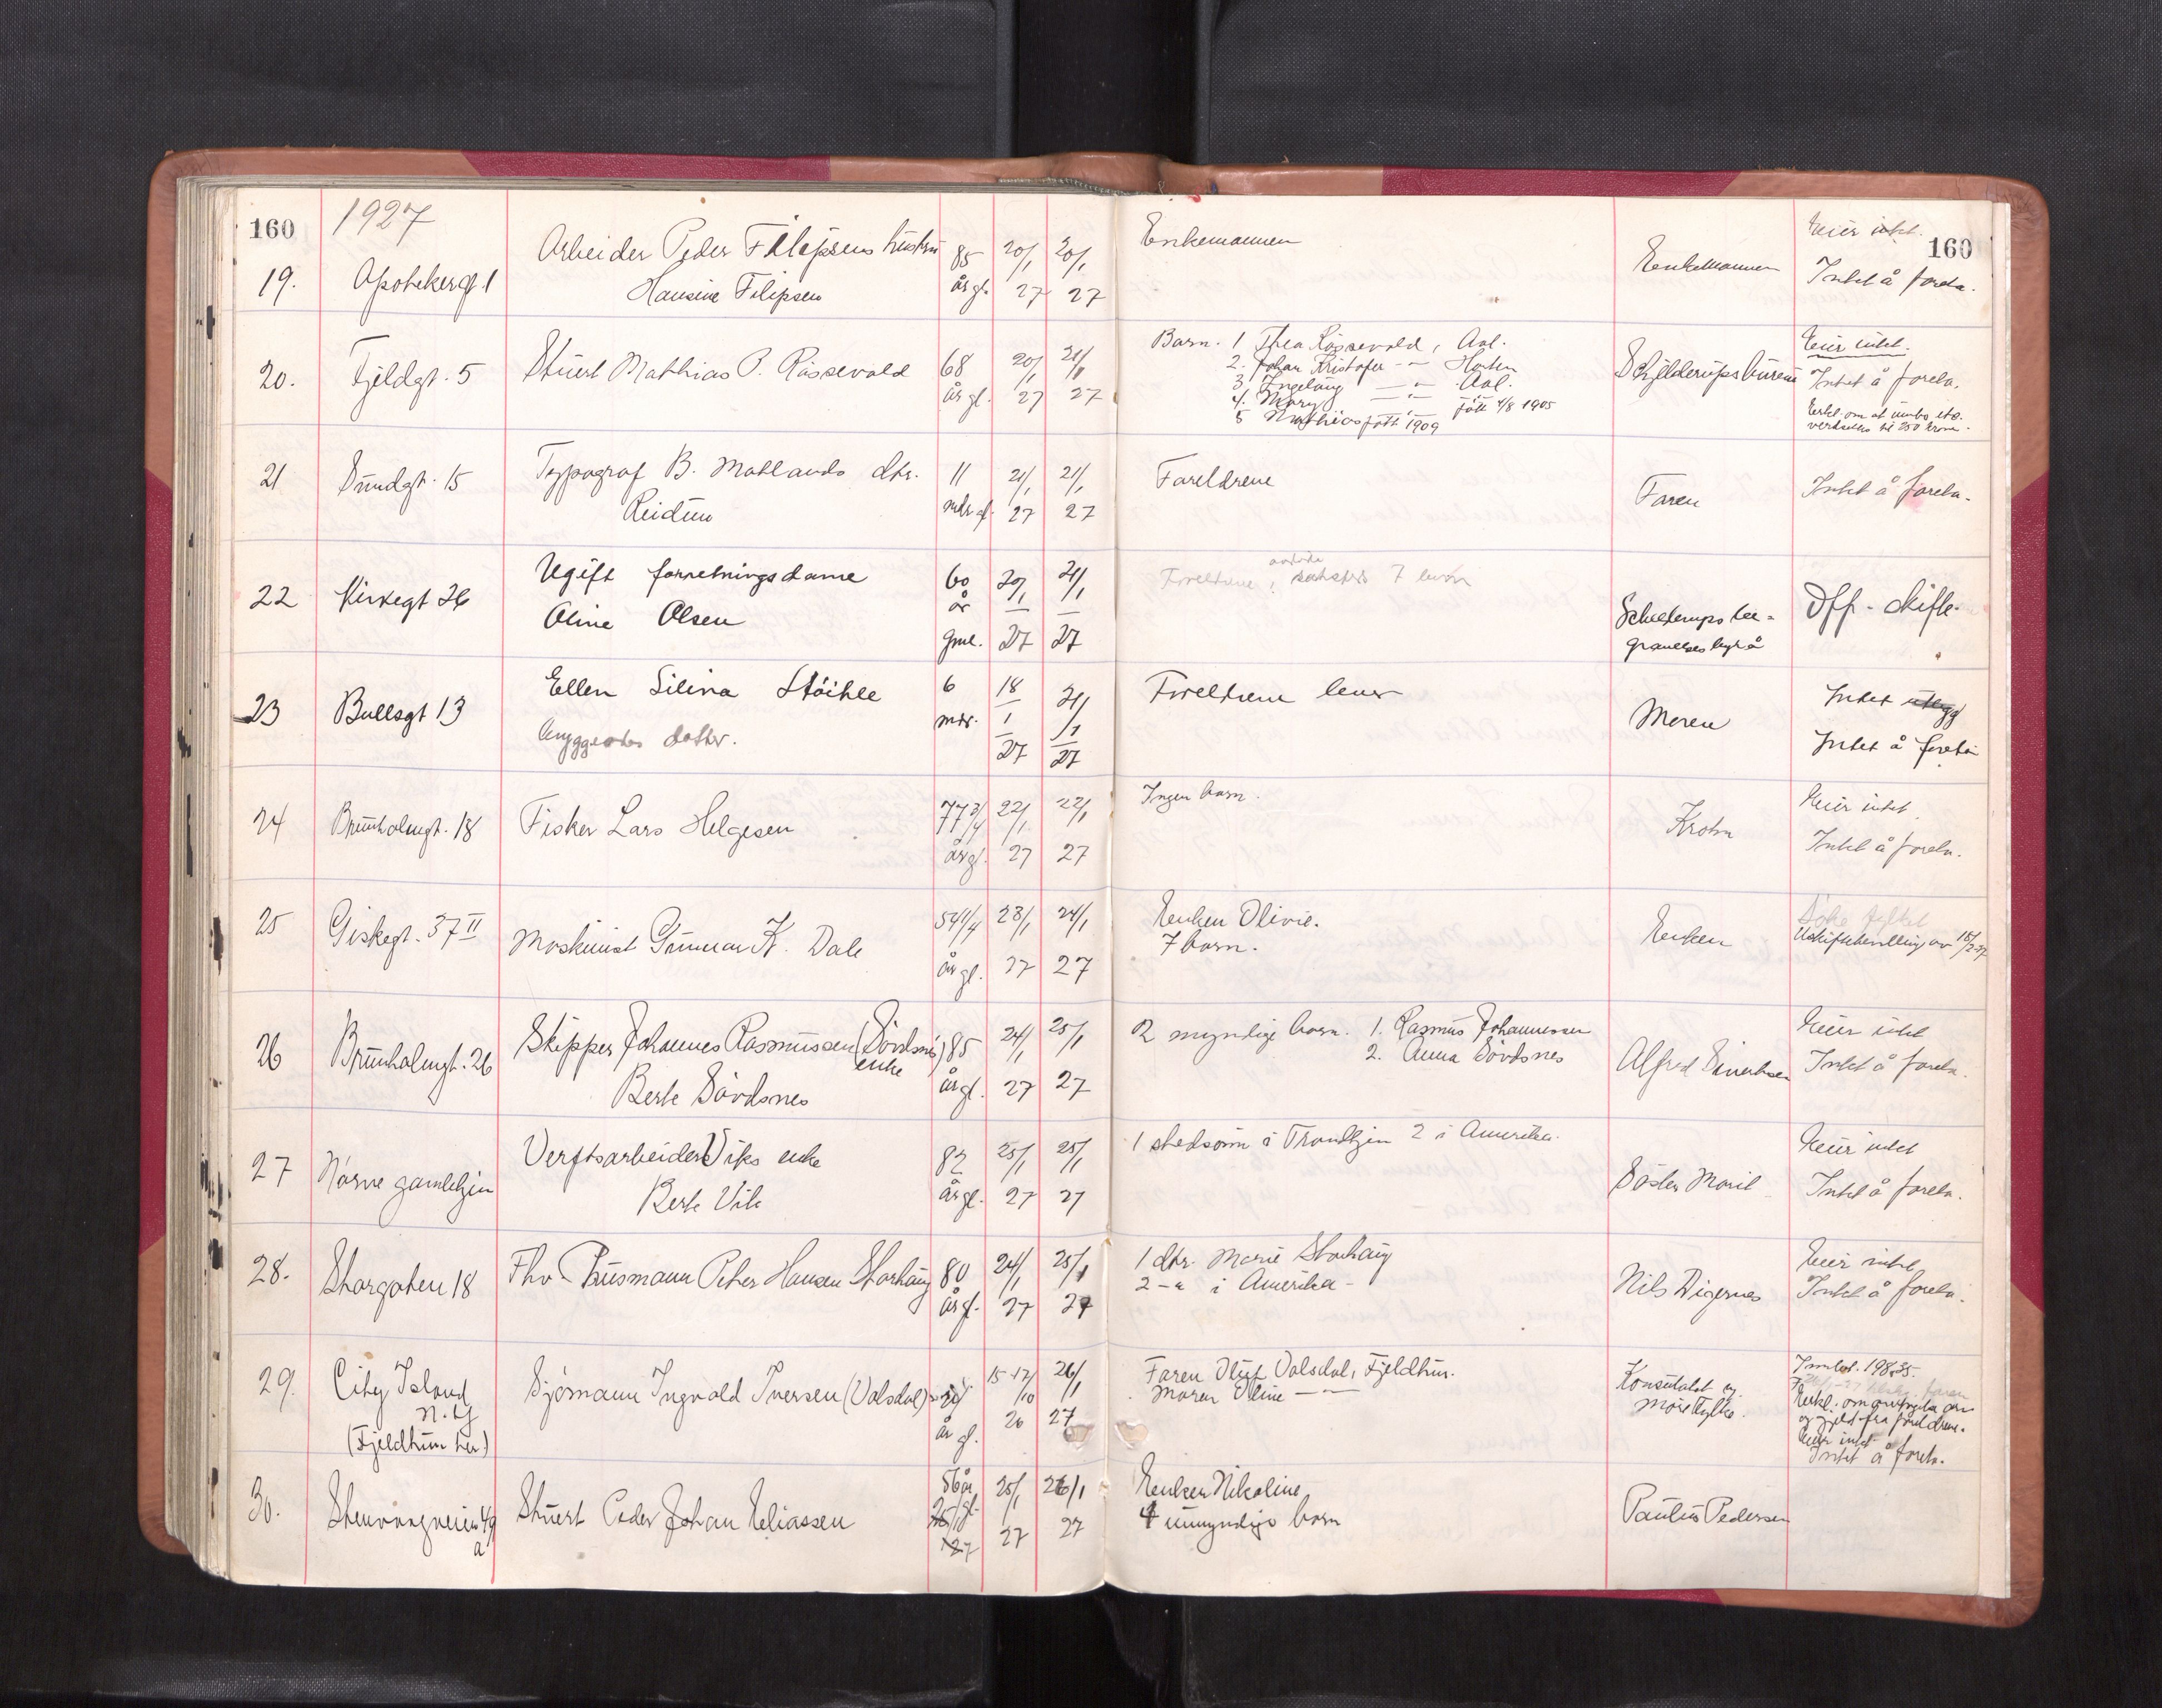 160
1927
160
19.
Apotekergt. 1
Arbeider Peder Filipsens hustru
Hansine Filipsen
85
år gl.
20/1
27
20/1
27
Enkemannen
Enkemannen
Eier intet.
Intet å foreta.
20.
Fjeldgt. 5
Stuert Mathias P. Røssevold
68
år gl.
20/1
27
21/1
27
Barn. 1 Thea Røssevold, Aal.
2. Johan Kristofer -"- Horten
3. Ingeborg -"- Aal.
4. Mary -"- født 4/8 1905
5 Mathias født 1909
Schjelderups bureau
Eier intet.
Intet å foreta.
Erkl. om at innbo etc.
verdsettes til 250 kroner.
21
Sundgt. 15
Typograf B. Matlands dtr.
Reidun
11
mdr. gl.
21/1
27
21/1
27
Foreldrene
Faren
Intet å foreta.
22
Kirkegt 26
Ugift forretningsdame
Oline Olsen
60
år
gml.
20/1
27
21/1
27
Foreldrene, søsken 7 barn
Schelderups be-
gravelsesbyrå
Off. skifte.
23
Bullsgt 13
Ellen Silina Stöihle
Bryggearb datter.
6
mdr.
18
1
27
21/1
27
Foreldrene lever
Moren
Intet utlegg
Intet å foreta
24
Brunholmgt. 18
Fisker Lars Helgesen
77 3/4
år gl.
22/1
27
22/1
27
Ingen barn.
Krohn
Eier intet.
Intet å foreta.
25
Giskegt. 37 II
Maskinist Gunnar K. Dale
54 1/4
år gl.
23/1
27
24/1
27
Enken Olivie.
7 barn.
Enken
Uskiftebevilling av 18/2-27
26
Brunholmgt. 26
Skipper Johannes Rasmussen (Sövdsnes)
enke
Berte Sövdsnes
85
år gl.
24/1
27
25/1
27
2 myndige barn. 1. Rasmus Johannessen
2. Anna Sövdsnes
Alfred Sivertsen
Eier intet
Intet å foreta.
27
Nörve gamlehjem
Verftsarbeider Viks enke
Berte Vik
82
år gl.
25/1
27
25/1
27
1 stedsønn i Trondhjem 2 i Amerika.
Söster Marit
Eier intet
Intet å foreta.
28.
Storgaten 18
Fhv. Husmann Peter Hansen Storhaug
80
år gl.
24/1
27
25/1
27
1 dtr. Marie Storhaug
2 -"- i Amerika -
Nils Digernes
Eier intet
Intet å foreta.
29.
City Island
N.Y
(Fjeldhim her)
Sjömann Ingvald Iversen (Valsdal)
år gl.
15-17/10
26
26/1
27
Faren Oluf Valsdal, Fjeldhim.
Moren Oline -"-
Konsulatet og
Møre Fylke.
Innbet. 198,35.
Erkl. om arv
og gjeld fra foreldrene.
Eier intet
Intet å foreta.
30.
Stenvaagveien 49
a
Stuert Peder Johan Eliassen
56 år
gl.
25/1
27
26/1
27
Enken Nikoline
4 umyndige barn
Paulus Pedersen